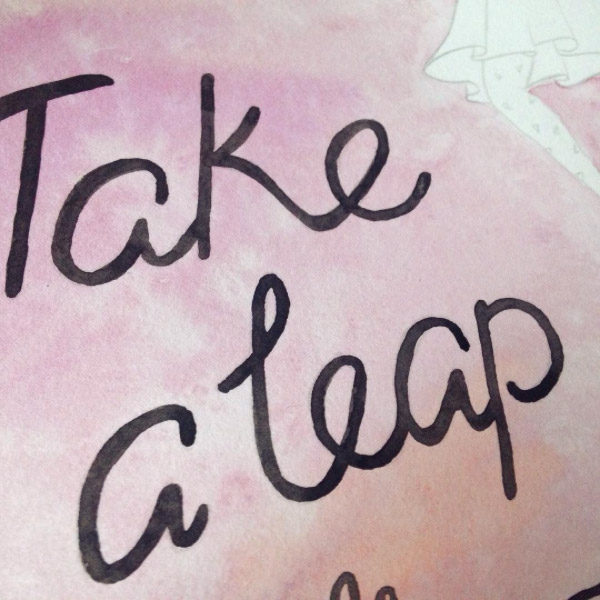 Take
a leap